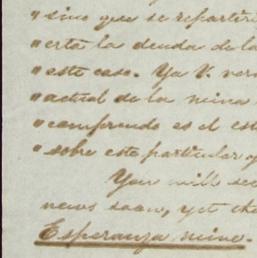 " sino que se repartirí
" erta la deuda de la
" este caso. Ya V. ver
" actual de la mina
" comprendo es el est
" sobre este particular q
You will see
news soon, yet the
Esperanza mine.